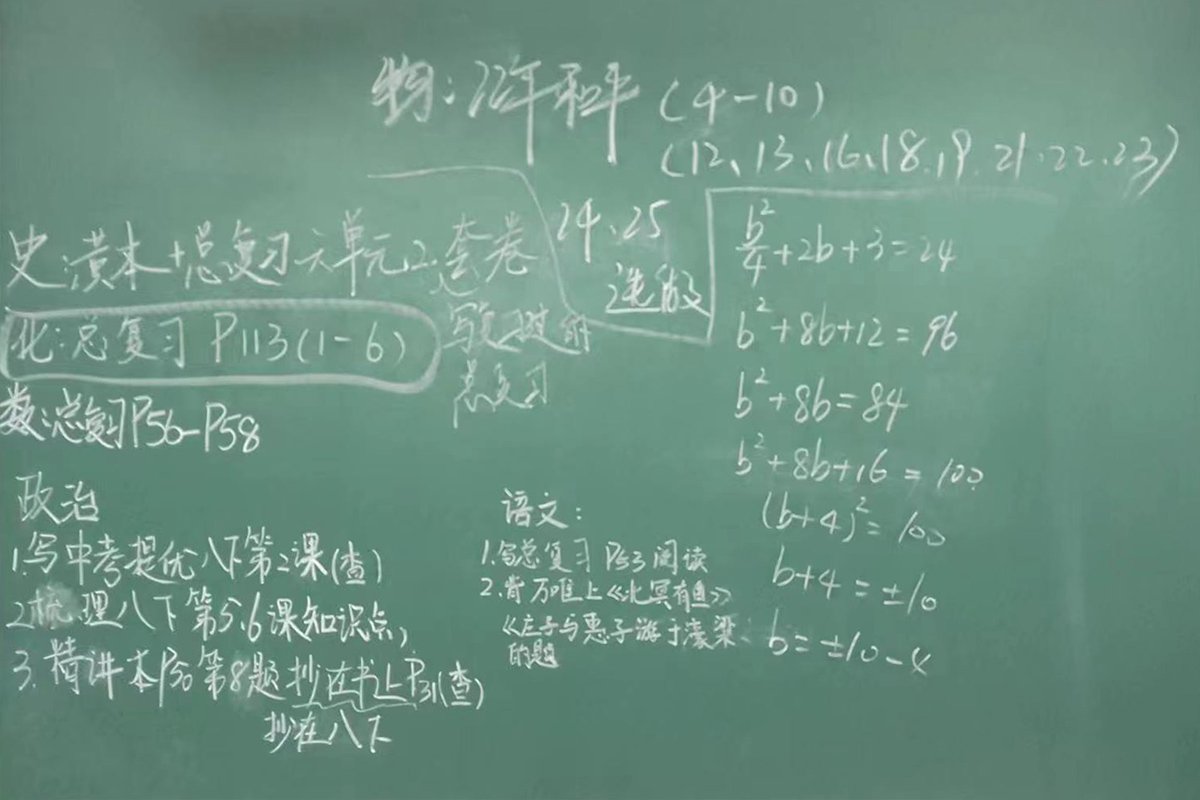 物:22年和平(4-10)
(12、13、16、18、19、21、22、23)
24、25
选做
史:黄本+总复习六单元2套卷
写复习提前
总复习
化:总复习 P113(1-6)
数:总复习P56-P58
政治
1.写中考提优八下第2课(查)
2.梳理八下第5、6课知识点,
3.精讲本P30第8题抄在书上P31(查)
抄在八下
语文:
1.写总复习 P53阅读
2.背万唯上《北冥有鱼》
《庄子与惠子游于濠梁
的题
b²/4+2b+3=24
b²+8b+12=96
b²+8b=84
b²+8b+16=100
(b+4)²=100
b+4=±10
b=±10-4